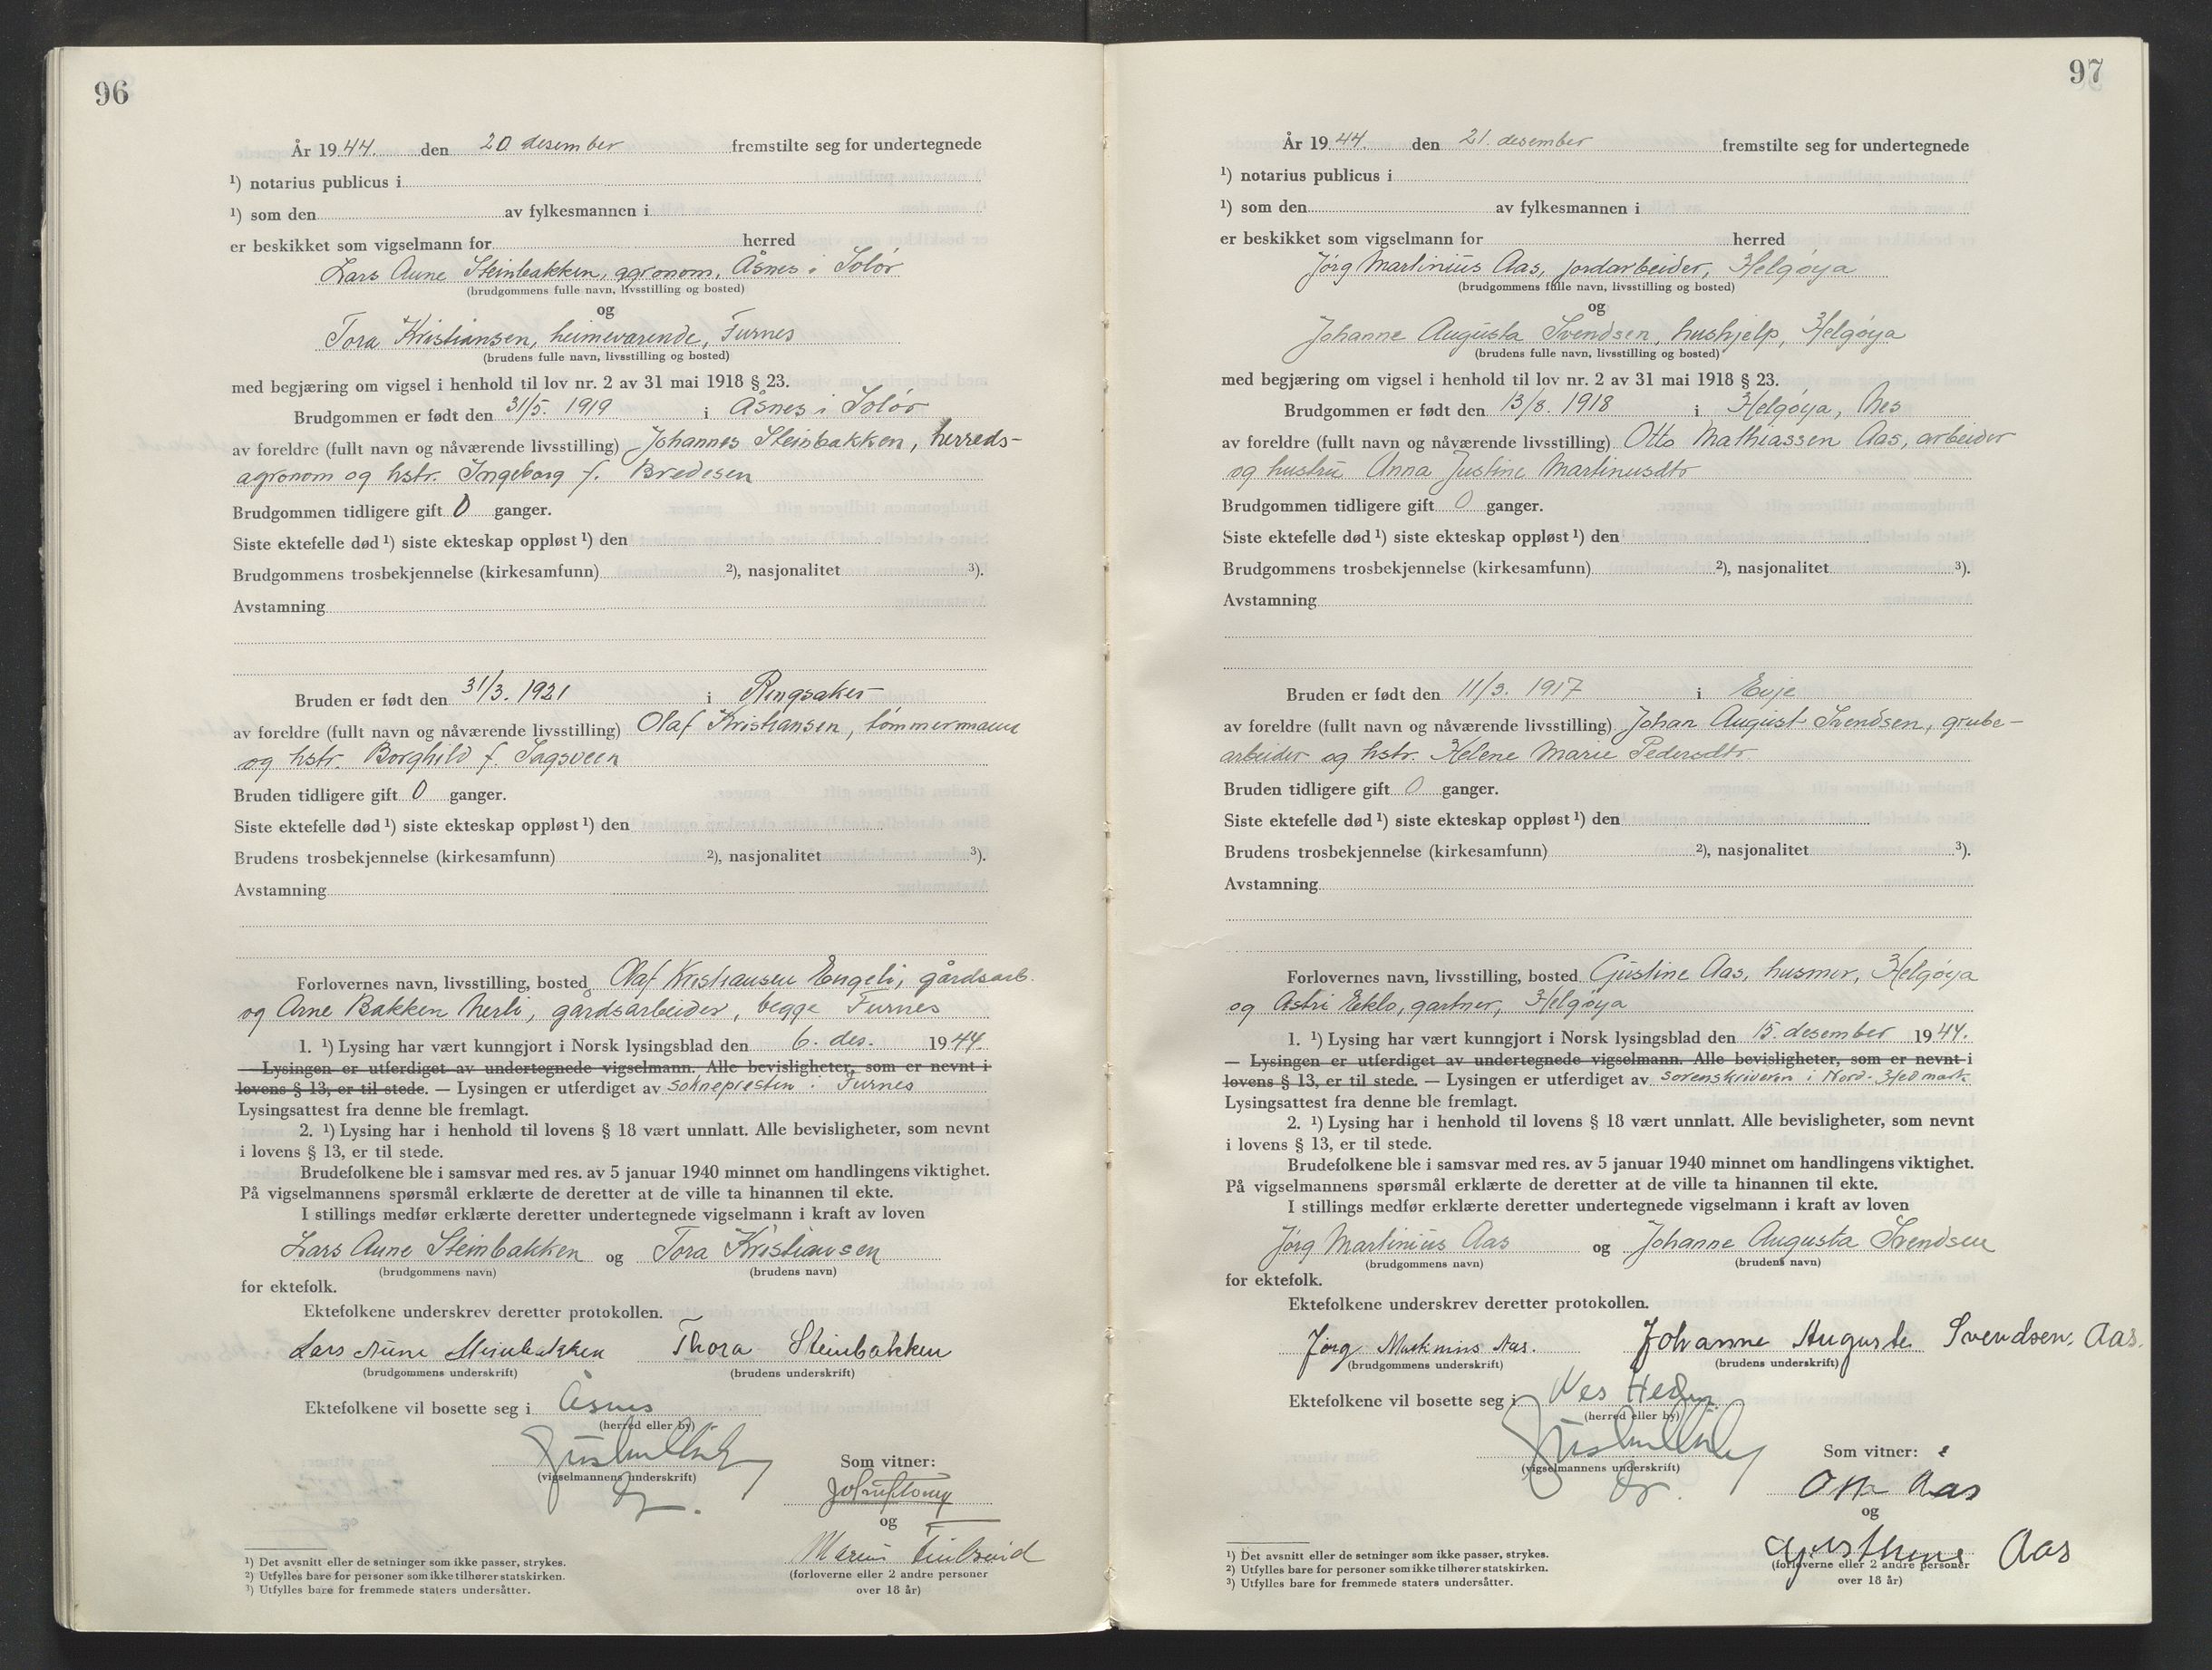 96
År 1944. den 20 desember fremstilte seg for undertegnede
¹) notarius publicus i
¹) som den av fylkesmannen i
er beskikket som vigselmann for herred
Lars Aune Steinbakken, agronom, Åsnes i Solør
(brudgommens fulle navn, livsstilling og bosted)
og
Tora Kristiansen, heimeværende, Furnes
(brudens fulle navn, livsstilling og bosted)
med begjæring om vigsel i henhold til lov nr. 2 av 31 mai 1918 § 23.
Brudgommen er født den 31/5. 1919 i Åsnes i Solør
av foreldre (fullt navn og nåværende livsstilling) Johannes Steinbakken, herreds-
agronom og hstr. Ingeborg f. Bredesen
Brudgommen tidligere gift 0 ganger.
Siste ektefelle død ¹) siste ekteskap oppløst ¹) den
Brudgommens trosbekjennelse (kirkesamfunn) ²), nasjonalitet ³).
Avstamning
Bruden er født den 31/3. 1921 i Ringsaker
av foreldre (fullt navn og nåværende livsstilling) Olaf Kristiansen, tømmermann
og hstr. Borghild f. Sagsveen
Bruden tidligere gift 0 ganger.
Siste ektefelle død ¹) siste ekteskap oppløst ¹) den
Brudens trosbekjennelse (kirkesamfunn) ²), nasjonalitet ³).
Avstamning
Forlovernes navn, livsstilling, bosted Olaf Kristiansen Engeli, gårdsarb.
og Arne Bakken Nerli, gårdsarbeider, begge Furnes
1. ¹) Lysing har vært kunngjort i Norsk lysingsblad den 6. des. 1944.
— Lysingen er utferdiget av undertegnede vigselmann. Alle bevisligheter, som er nevnt i
lovens § 13, er til stede. — Lysingen er utferdiget av soknepresten i Furnes
Lysingsattest fra denne ble fremlagt.
2. ¹) Lysing har i henhold til lovens § 18 vært unnlatt. Alle bevisligheter, som nevnt
i lovens § 13, er til stede.
Brudefolkene ble i samsvar med res. av 5 januar 1940 minnet om handlingens viktighet.
På vigselmannens spørsmål erklærte de deretter at de ville ta hinannen til ekte.
I stillings medfør erklærte deretter undertegnede vigselmann i kraft av loven
Lars Aune Steinbakken og Tora Kristiansen
(brudgommens navn) (brudens navn)
for ektefolk.
Ektefolkene underskrev deretter protokollen.
Lars Aune Steinbakken Thora Steinbakken
(brudgommens underskrift) (brudens underskrift)
Ektefolkene vil bosette seg i Åsnes
(herred eller by)
(vigselmannens underskrift)
Som vitner:
og
(forloverne eller 2 andre personer
over 18 år)
¹) Det avsnitt eller de setninger som ikke passer, strykes.
²) Utfylles bare for personer som ikke tilhører statskirken.
³) Utfylles bare for fremmede staters undersåtter.
97
År 1944. den 21. desember fremstilte seg for undertegnede
¹) notarius publicus i
¹) som den av fylkesmannen i
er beskikket som vigselmann for herred
Jørg Martinius Aas, jordarbeider, Helgøya
(brudgommens fulle navn, livsstilling og bosted)
og
Johanne Augusta Svendsen, hushjelp, Helgøya
(brudens fulle navn, livsstilling og bosted)
med begjæring om vigsel i henhold til lov nr. 2 av 31 mai 1918 § 23.
Brudgommen er født den 13/8. 1918 i Helgøya, Nes
av foreldre (fullt navn og nåværende livsstilling) Otto Mathiassen Aas, arbeider
og hustru Anna Justine Martinusdtr
Brudgommen tidligere gift 0 ganger.
Siste ektefelle død ¹) siste ekteskap oppløst ¹) den
Brudgommens trosbekjennelse (kirkesamfunn) ²), nasjonalitet ³).
Avstamning
Bruden er født den 11/3. 1917 i Evje
av foreldre (fullt navn og nåværende livsstilling) Johan August Svendsen, grube-
arbeider og hstr. Helene Marie Pedersdtr.
Bruden tidligere gift 0 ganger.
Siste ektefelle død ¹) siste ekteskap oppløst ¹) den
Brudens trosbekjennelse (kirkesamfunn) ²), nasjonalitet ³).
Avstamning
Forlovernes navn, livsstilling, bosted Gustine Aas, husmor, Helgøya
og Astri Eklo, gartner, Helgøya
1. ¹) Lysing har vært kunngjort i Norsk lysingsblad den 15. desember 1944.
— Lysingen er utferdiget av undertegnede vigselmann. Alle bevisligheter, som er nevnt i
lovens § 13, er til stede. — Lysingen er utferdiget av sorenskriveren i Nord-Hedmark
Lysingsattest fra denne ble fremlagt.
2. ¹) Lysing har i henhold til lovens § 18 vært unnlatt. Alle bevisligheter, som nevnt
i lovens § 13, er til stede.
Brudefolkene ble i samsvar med res. av 5 januar 1940 minnet om handlingens viktighet.
På vigselmannens spørsmål erklærte de deretter at de ville ta hinannen til ekte.
I stillings medfør erklærte deretter undertegnede vigselmann i kraft av loven
Jørg Martinius Aas og Johanne Augusta Svendsen
(brudgommens navn) (brudens navn)
for ektefolk.
Ektefolkene underskrev deretter protokollen.
Jørg Martinius Aas. Johanne Auguste Svendsen. Aas.
(brudgommens underskrift) (brudens underskrift)
Ektefolkene vil bosette seg i Nes Hedm.
(herred eller by)
(vigselmannens underskrift)
Som vitner:
Otto Aas
og
Gusthine Aas
(forloverne eller 2 andre personer
over 18 år)
¹) Det avsnitt eller de setninger som ikke passer, strykes.
²) Utfylles bare for personer som ikke tilhører statskirken.
³) Utfylles bare for fremmede staters undersåtter.